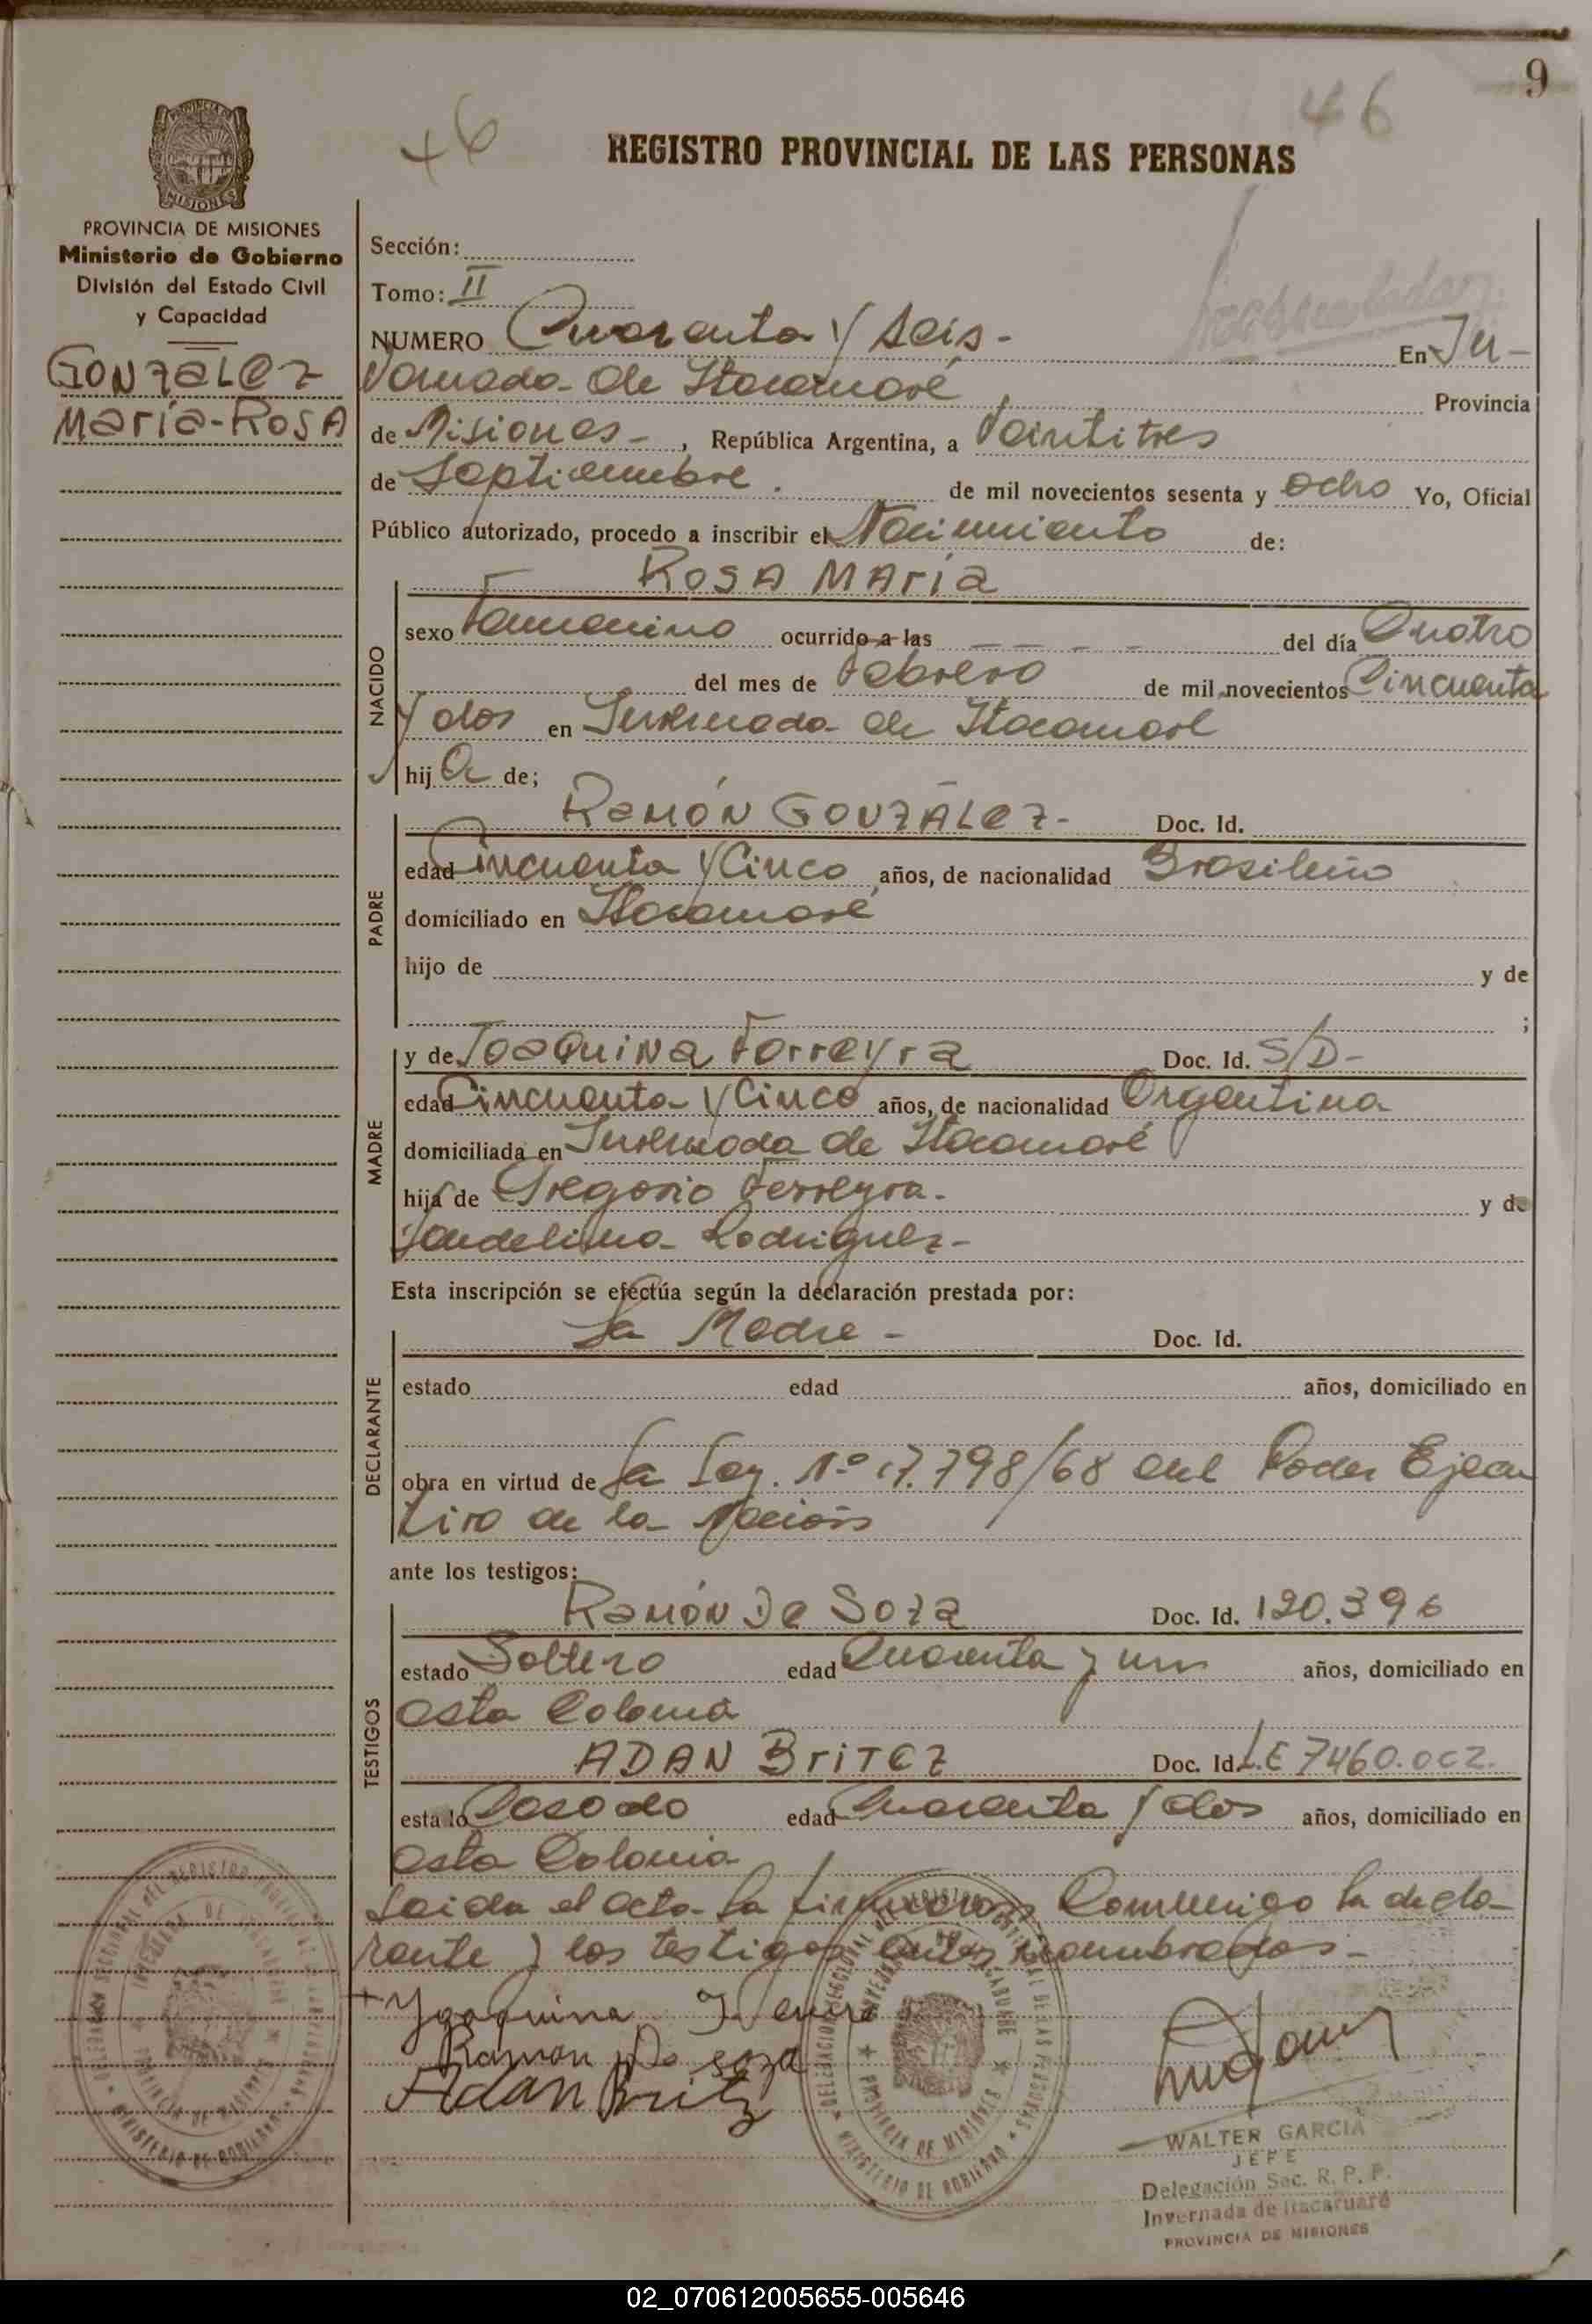 9
46
46
REGISTRO PROVINCIAL DE LAS PERSONAS
PROVINCIA DE MISIONES
Ministerio de Gobierno
División del Estado Civil
y Capacidad
GONZÁLEZ
María-ROSA
Sección:
Tomo: II
NUMERO Cuarenta y seis- En In-
vernada de Itacaruaré, Provincia
de Misiones-, República Argentina, a Veintitres
de Septiembre. de mil novecientos sesenta y ocho Yo, Oficial
Público autorizado, procedo a inscribir el Nacimiento de:
NACIDO
ROSA MARÍA
sexo Femenino ocurrido a las - - - - del día Cuatro
del mes de Febrero de mil novecientos Cincuenta
y dos en Invernada de Itacaruaré
hija de;
PADRE
RAMÓN GONZÁLEZ- Doc. Id.
edad Cincuenta y Cinco años, de nacionalidad Brasileño
domiciliado en Itacaruaré
hijo de y de
;
MADRE
y de Joaquina Ferreyra Doc. Id. S/D-
edad Cincuenta y Cinco años, de nacionalidad Argentina
domiciliada en Invernada de Itacaruaré
hija de Gregorio Ferreyra- y de
Rodriguez-
Esta inscripción se efectúa según la declaración prestada por:
DECLARANTE
La Madre- Doc. Id.
estado edad años, domiciliado en
obra en virtud de La Ley. Nº 17.798/68 del Poder Ejecu
tivo de la Nación
ante los testigos:
TESTIGOS
RAMÓN De Soza Doc. Id. 120.396
estado Soltero edad Cuarenta y un años, domiciliado en
esta Colonia
ADAN BriTez Doc. Id. L.E 7460.002.
estado Casado edad Cuarenta y dos años, domiciliado en
esta Colonia
Leida el acta la firmaron Conmigo la decla-
rante y los testigos antes nombrados-
+Yoaquina
Ramon De soza
Adan Britz
WALTER GARCIA
JEFE
Delegación Sec. R. P. P.
Invernada de Itacaruaré
PROVINCIA DE MISIONES
02_070612005655-005646